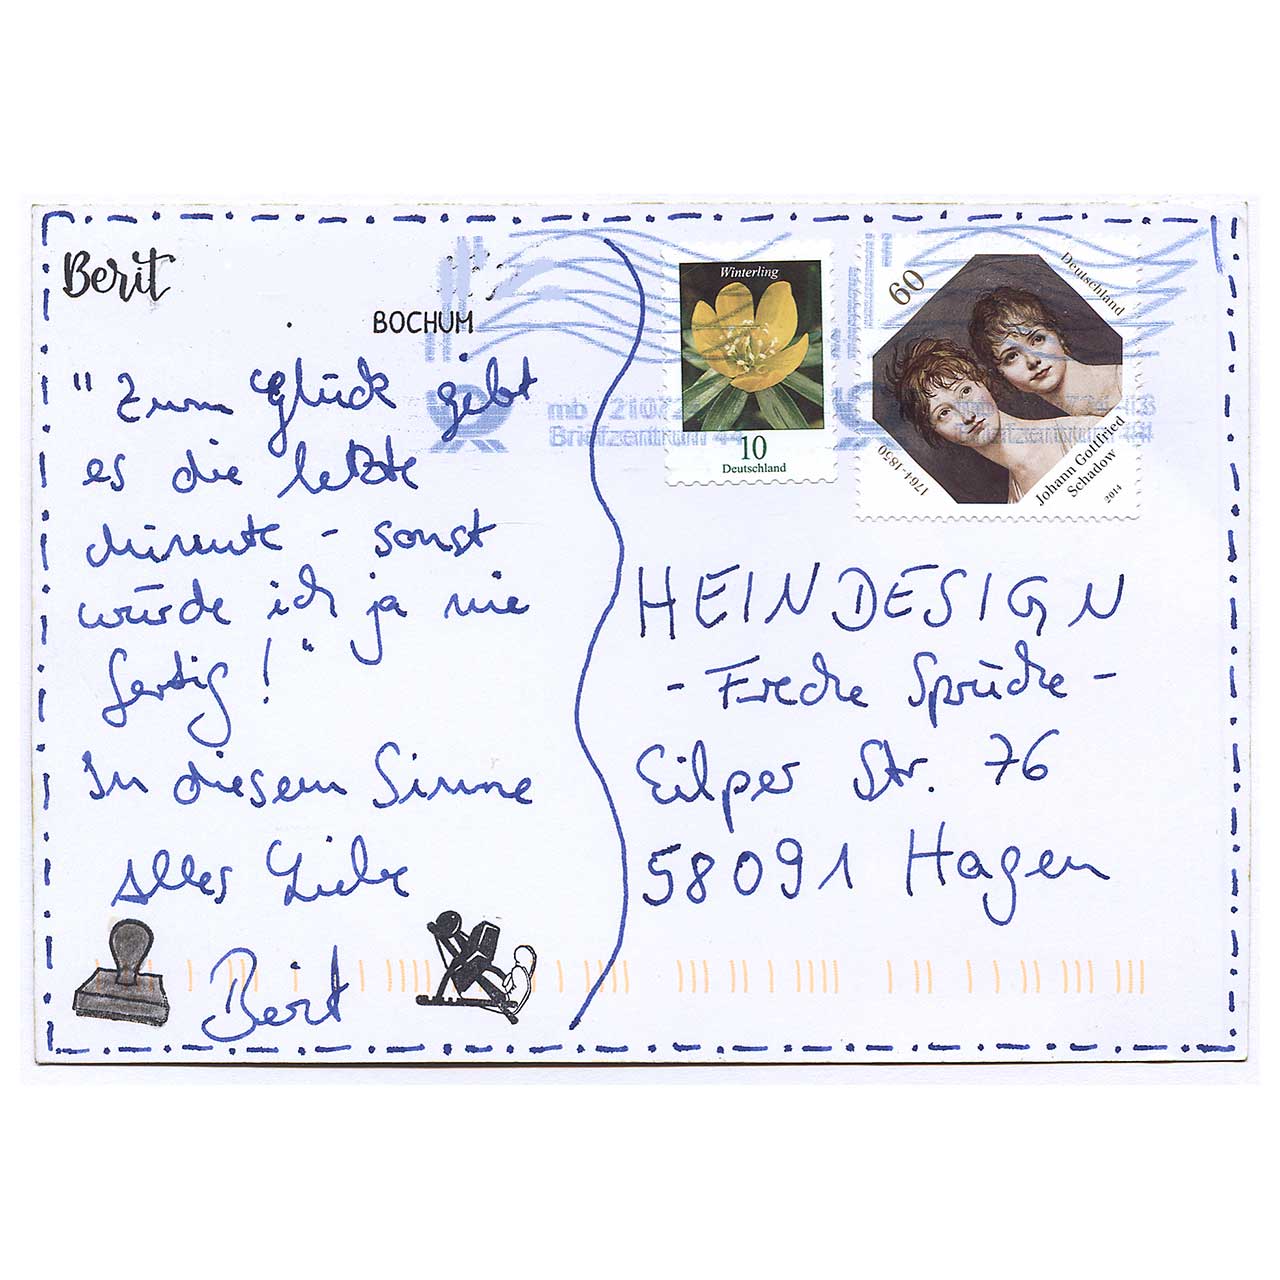 Berit
BOCHUM
"Zum Glück gibt
es die letzte
Minute - sonst
würde ich ja nie
fertig!"
In diesem Sinne
Alles Liebe
Berit
Winterling
10
Deutschland
60
Deutschland
Johann Gottfried
Schadow
1764-1850
2014
mb 21.07.2
Briefzentrum 44
Briefzentrum 44
HEINDESIGN
- Freche Sprüche -
Eilper Str. 76
58091 Hagen